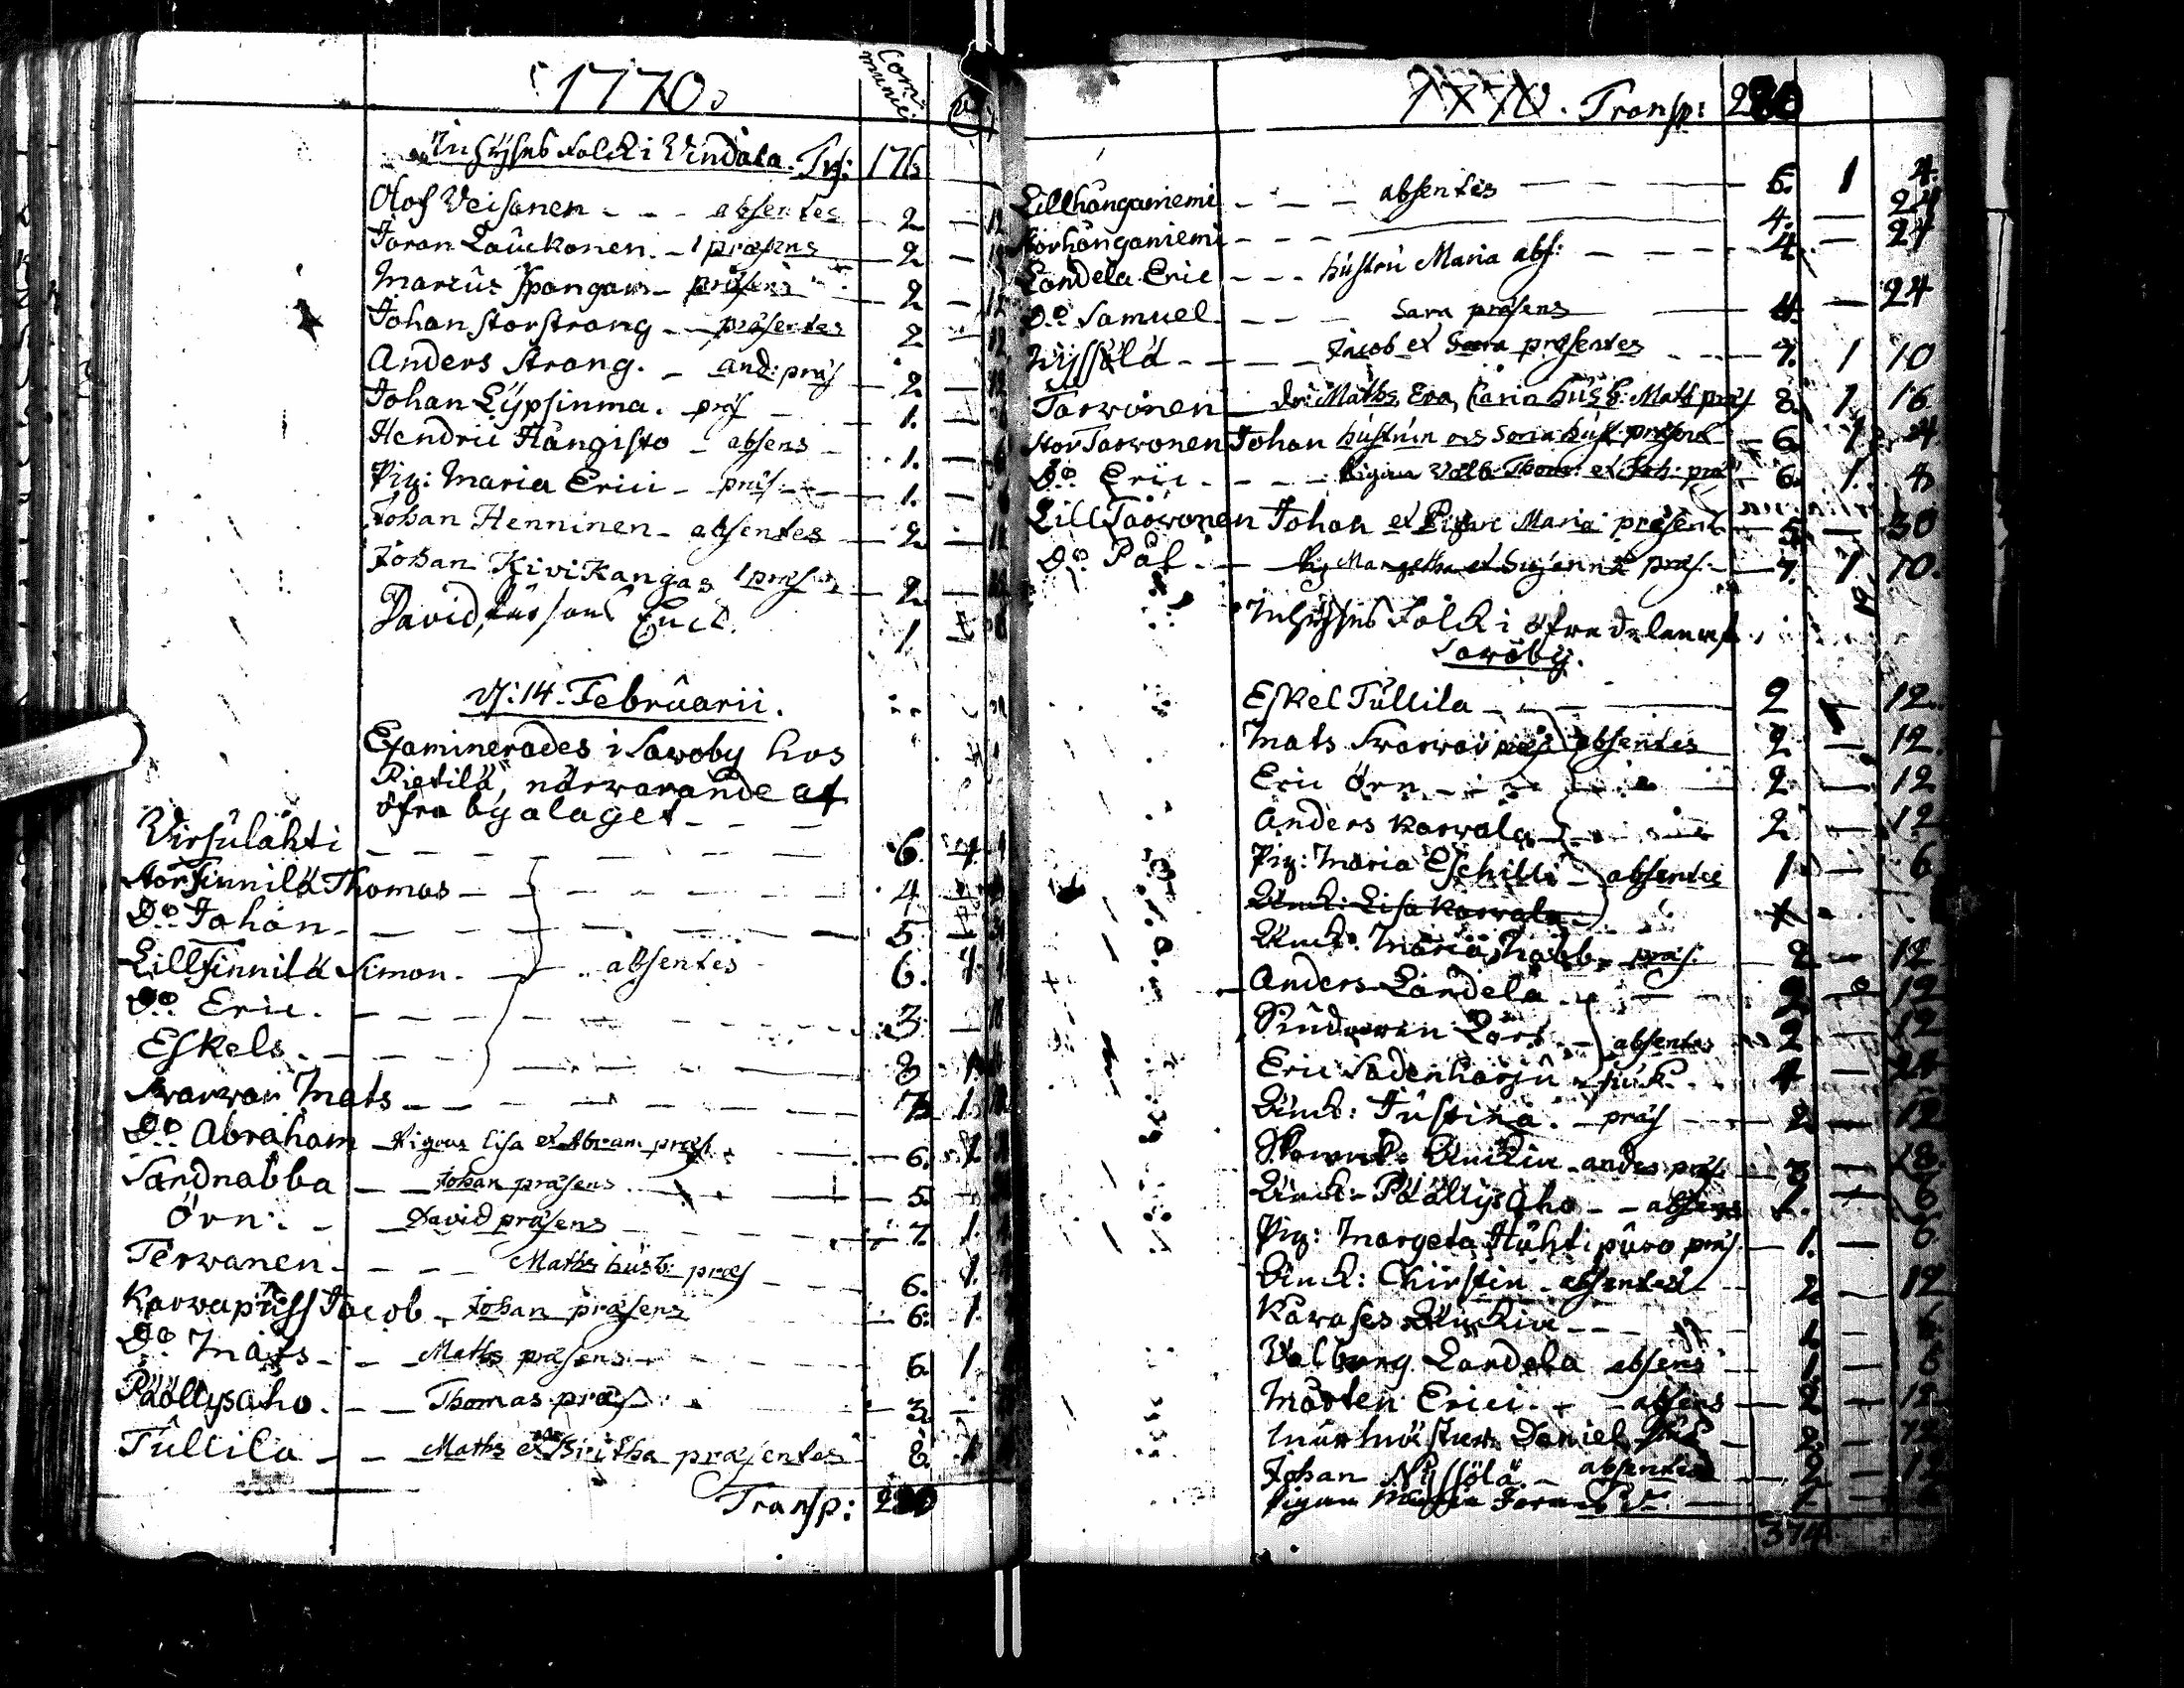 1770.
Com
munici
Inhyses Folck i Vindala. Trp: 176
Olof Veisanen - - - absentes - 2 - 12
Joran Lauckonen. - 1 præsens - 2 - 12
Marcus Spangars - præsens - 2 - 12
Johan Storstrang - - præsentes 2 - 12
Anders Strang. - And: præs - 2 - 12
Johan Lypsinma. præs - 1. - 6
Hendric Hångisto - absens - 1. - 6
Pig: Maria Erici - præs: - 1. - 6
Johan Henninen - absentes - 2 - 12
Johan Kivikangas 1 præsens 2 - 12
David, 1
d: 14. Februarii.
Examinerades i Sawoby hos
Pietilä, närwarande af
öfra byalaget - - -
Virsulahti - - - 6. 1
Stor Finnilä Thomas - - - 4
Do. Johan - - - 5
Lill Finnilä Simon. - absentes 6. 1
Do. Eric. - - - 3
Eskels. - - - 8 1
Swarwar Mats - - - 7 1
Do. Abraham - Pigan Lisa et Abram præs. - 6. 1
Sandnabba - - Johan præsens - 5.
Örn. - - David præsens - 7. 1.
Terwanen - - - Maths hust: præs - 6. 1.
Karwapuss Jacob - Johan præsens - 6. 1.
Do. Mats - - - Maths præsens - 6. 1
Pööllysaho. - - Thomas præs - 3. -
Tullila - - Maths et Britha præsentes 8. 1
Transp: 280
1770. Transp: 280
Lillhånganiemi - - - absentes - - - 6. 1 4.
Storhånganiemi - - - 4. - 24
Landela Eric - - - hustru Maria abs: - - - 4 - 24
Do. Samuel - - - Sara præsens - 4. - 24
Nyssölä - - - Jacob et Sara præsentes - - - 7. 1 10
Tarwonen - Maths, Eva, Carin præs 8. 1 16
Stor Tarwonen Johan hustrun - 6. 1. 4
Do. Eric. - - - Pigan præs - 6. 1. 4
Lill Tarwonen Johan et Pigan Maria præsent 5. - 30
Do. Påt. - Pig Margetha et Susanna præs - 7. 1 10.
Inhyses Folck i öfre delen af
Sawöby.
Eskel Tullila - - - 2 - 12.
Mats Swarwar præs absentes 2 - 12.
Eric Örn - - - 2 - 12
Anders Karwala - - - 2 - 12
Pig: Maria Eschilli - absentes 1 - 6
Änck: Lisa Karwala
Änck: Maria Nabb, præs. 2 - 12
Anders Landela - - 2 - 12
Lars - absentes 2 - 12
Eric Sadenharju - sjuk. 4 - 24
Änck: Justina. - præs - 2 - 12
Änckia - andes præs. - 3 - 18.
Änck: Pööllysaho - - absens 1. - 6
Pig: Margeta Huhtipuro præs. - 1. - 6
Änck: Chirstin - absentes - 2 - 12
Karases Änckia - - - 1 - 6
Walborg Landela absens - 1 - 6
Mårten Erici. - absens - 2 - 12
Murmästaren Daniel - 2. - 12
Johan Nyssölä - absentes - 2 - 12
Pigan 1 -
374